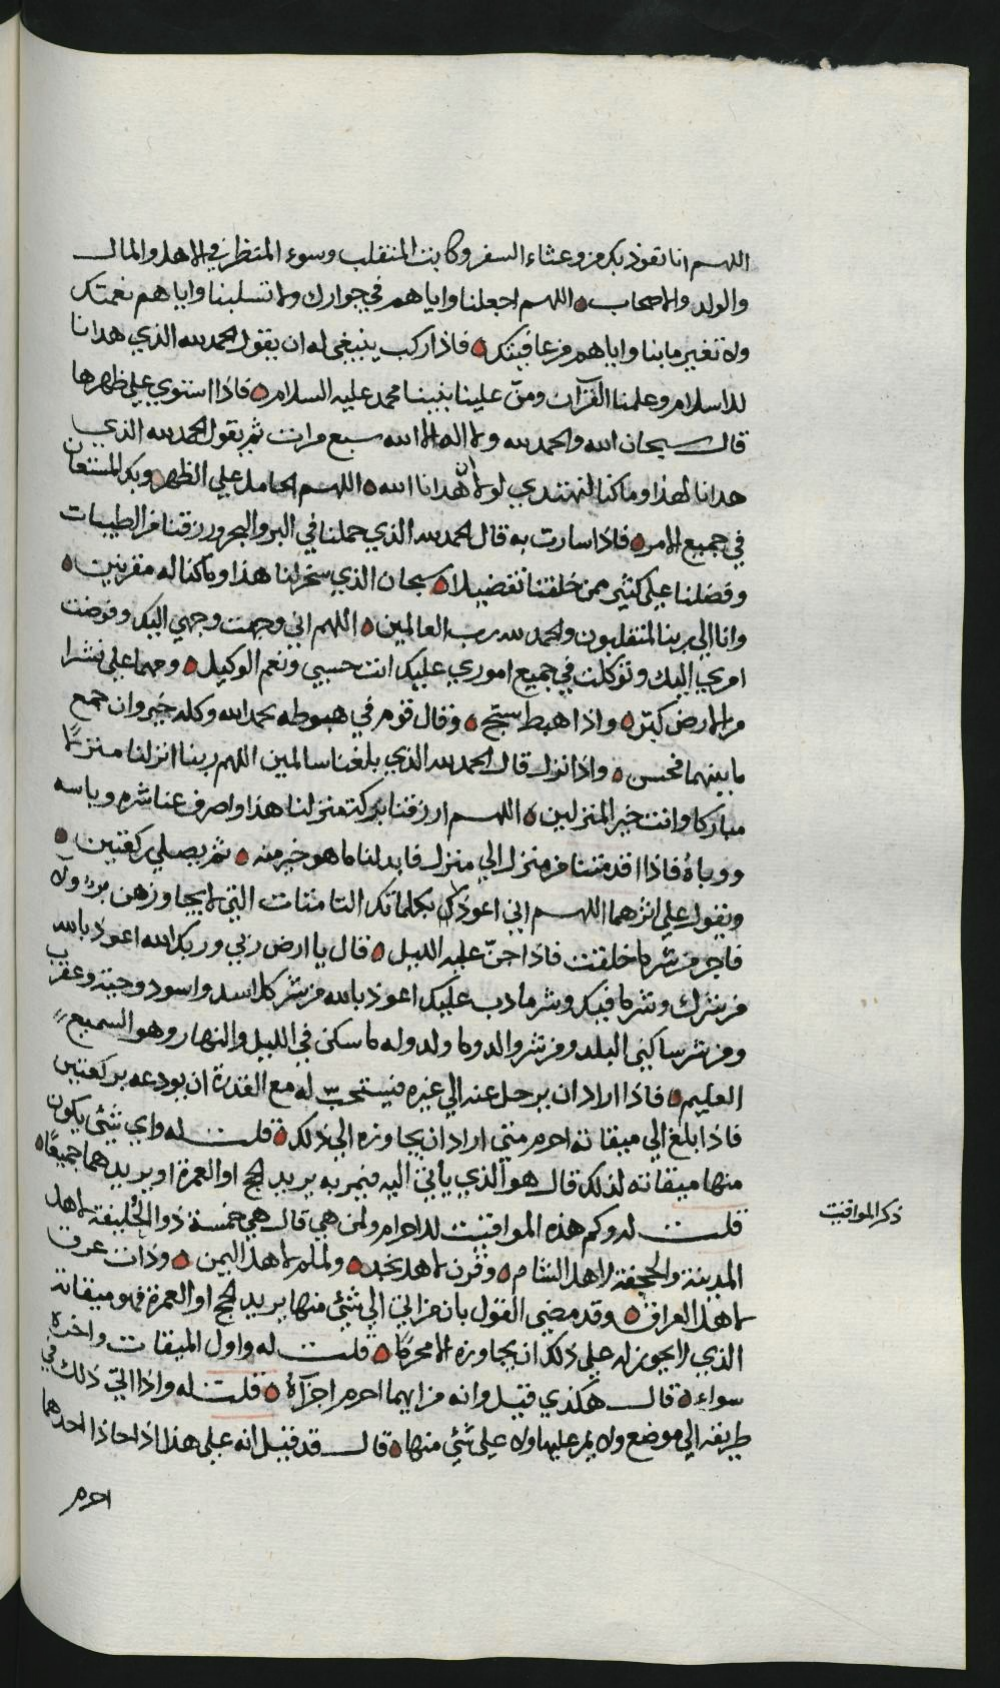 اللهم انا نعوذ بك من وعثاء السفر وكابت المنقلب وسوء المنظر في الاهل والمال
والولد والاصحاب ٥ اللهم اجعلنا واياهم في جوارك ولا تسلبنا واياهم نعمتك
ولا تغير ما بنا واياهم من عافيتك ٥ فاذا ركب ينبغي له ان يقول الحمد لله الذي هدانا
للاسلام وعلمنا القرآن ومنّ علينا بنبينا محمد عليه السلام ٥ فاذا استوي علي ظهرها
قال سبحان الله والحمد لله ولا اله الا الله سبع مرات ثم يقول الحمد لله الذي
هدانا لهذا وما كنا لنهتدي لولا ان هدانا الله ٥ اللهم الحامل علي الظهر وبك المستعان
في جميع الامر ٥ فاذا سارت به قال الحمد لله الذي حملنا في البر والبحر ورزقنا من الطيبات
وفضلنا علي كثير ممن خلقنا تفضيلا ٥ سبحان الذي سخر لنا هذا وما كنا له مقرنين ٥
وانا الي ربنا لمنقلبون والحمد لله رب العالمين ٥ اللهم اني وجهت وجهي اليك وفوضت
امري اليك وتوكلت في جميع اموري عليك انت حسبي ونعم الوكيل ٥ ومهما علي نشرا
من الارض كبّر ٥ واذا هبط سبّح ٥ وقال قوم في هبوطه يحمد الله وكله خير وان جمع
ما بينهما فحسن ٥ واذا نزل قال الحمد لله الذي بلغنا سالمين اللهم ربنا انزلنا منزلا
مباركا وانت خير المنزلين ٥ اللهم ارزقنا بركة منزلنا هذا واصرف عنا شره وباسه
ووباءه فاذا اقدمتنا من منزل الي منزل فابدلنا ما هو خير منه ٥ ثم يصلي ركعتين ٥
ويقول علي اثرهما اللهم اني اعوذ بك بكلماتك التامتات التي لا يجاوزهن بر ولا
فاجر من شر ما خلقت فاذا جنّ عليه الليل ٥ قال يا ارض ربي وربك الله اعوذ بالله
من شرك وشر ما فيك وشر ما دب عليك اعوذ بالله من شر كل اسد واسود وحية وعقرب
ومن شر ساكني البلد ومن شر والد وما ولد وله ما سكن في الليل والنهار وهو السميع
العليم ٥ فاذا اراد ان يرحل عنه الي غيره فيستحبّ له مع القدرة ان يودعه بركعتين
فاذا بلغ الي ميقاته احرم متي اراد ان يجاوزه الي ذلك ٥ قلت له واي شيّ يكون
منها ميقاته لذلك قال هو الذي يأتي اليه فيمر به يريد الحج او العمرة او يريدهما جميعًا ٥
قلت له وكم هذه المواقيت للاحرام ولمن هي قال هي خمسة ذو الحُليفة لاهل
المدينة والجحفة لاهل الشام ٥ وقرن لاهل نجد ٥ ولملم لاهل اليمن ٥ وذات عرق
لاهل العراق ٥ وقد مضي القول بان من اتي الي شيّ منها يريد الحج او العمرة فهو ميقاته
الذي لا يجوز له علي ذلك ان يجاوزه الا محرمًا ٥ قلت له واول الميقات واخره
سواء ٥ قال هكذي قيل وانه من ايهما احرم اجزأه ٥ قلت له واذا اتي ذلك في
طريقه الي موضع ولا يمر عليها ولا علي شيّ منها ٥ قال قد قيل انه علي هذا اذا حاذا احدهما
احرم
ذكر المواقيت